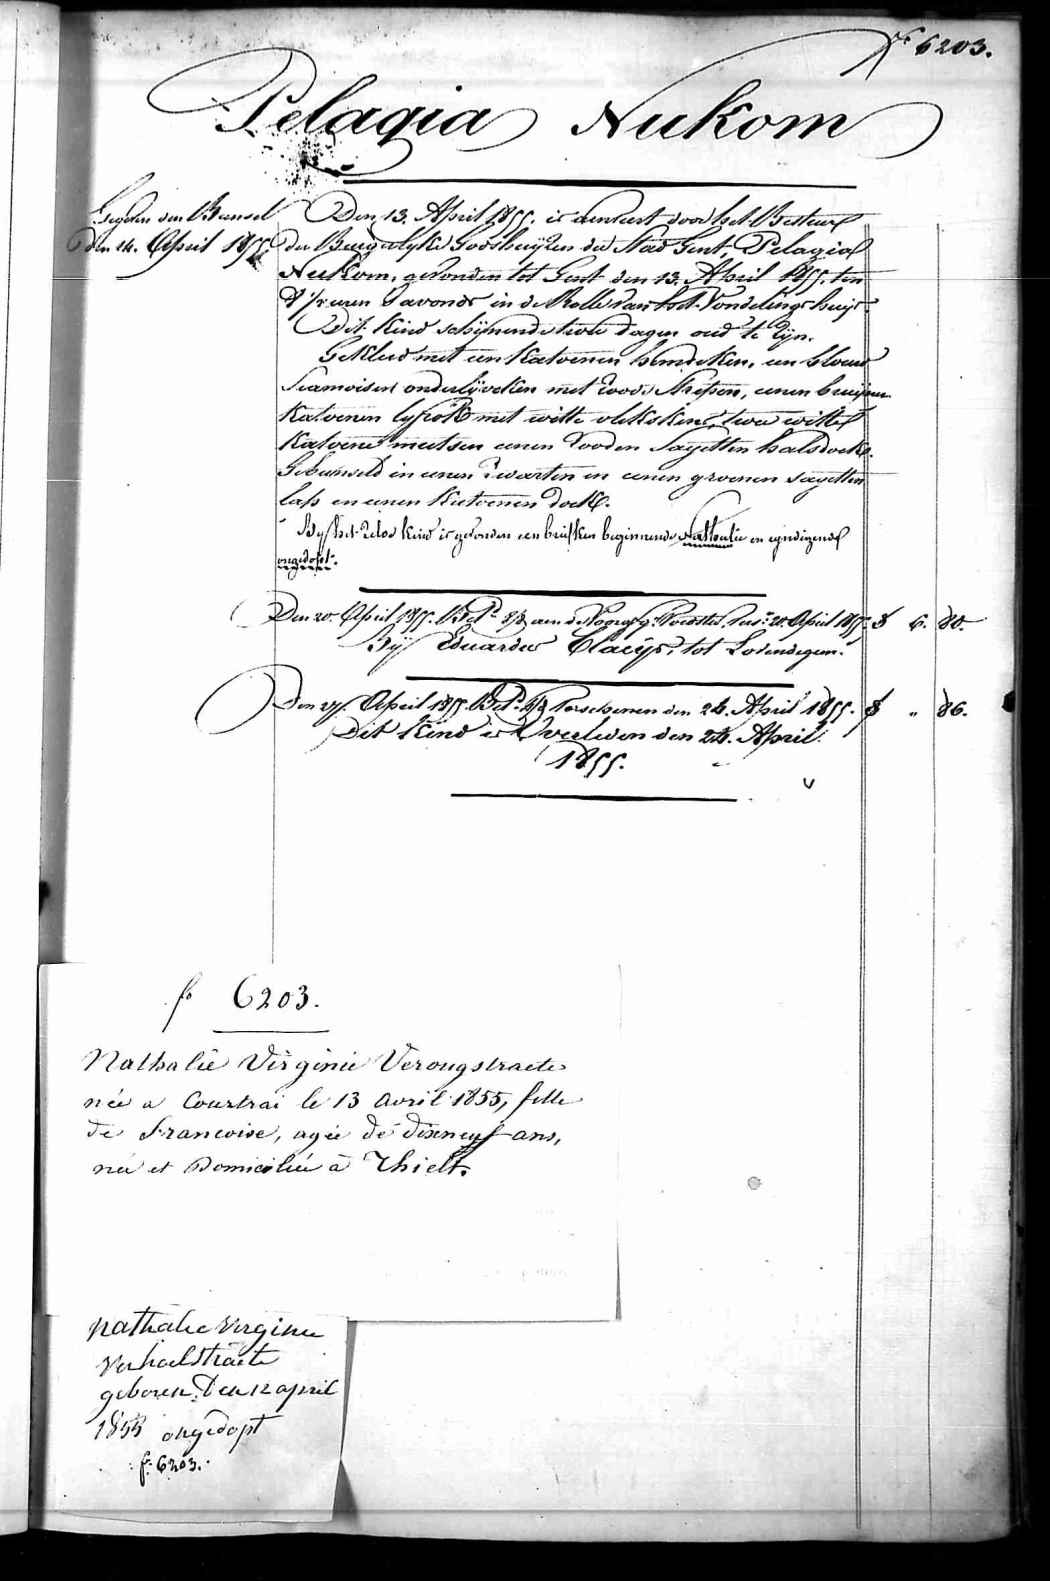 fº 6203.
Pelagia Nukom
Gegeven den Bunsel
den 24. April 1855.
Den 13. April 1855. is aenveert door het Bestuer
der Burgerlyke Godshuyzen der Stad Gent, Pelagia
Nukom, gevonden tot Gent den 13. April 1855. ten
uren s'avonds in de Rolle van het Vondelingshuys.
Dit kind schijnende twee dagen oud te zijn.
Gekleed met een katoenen hemdeken, een blauw
Siamoisen onderlijveken met roode strepen, eenen bruynen
katoenen lyfrok met witte vlekskens, twee witte
katoene meetsen eenen rooden sayetten halsdoek.
Gebunseld in eenen zwarten en eenen groenen sayetten
lap en eenen katoenen doek.
By het zelve kind is gevonden een briefken beginnende Nathalie en eyndigende
ongedopt.
Den 20. April 1855. Bet. aen de Voorg. Voedster. 20 April 1855. 6. 80.
By Eduardus Claeys tot Lovendegem.
Den 27. April 1855. Bet. Verschenen den 24. April 1855. " 86.
Dit kind is Overleden den 24. April
1855.
fº 6203.
Nathalie Virginie Verougstraete
née a Courtrai le 13 avril 1855, fille
de Francoise, agée de dixneuf ans,
née et Domiciliée à Thielt.
Nathalie Virginie
Verhoelstraete
geboren Den 12 april
1855 ongedopt
fº 6203.